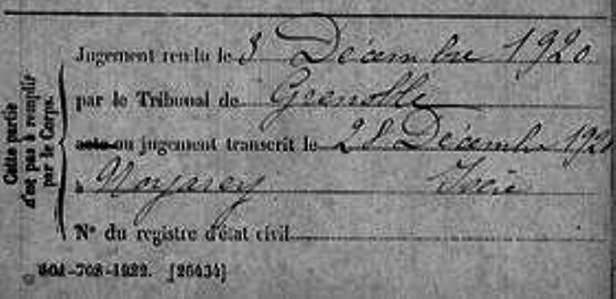 Jugement rendu le 3 Décembre 1920
par le Tribunal de Grenoble
acte ou jugement transcrit le 28 Décembre 192
à Noyarey Isère
N° du registre d'état civil
Cette partie
n'est pas à remplir
par le Corps.
801-708-1922. [26434]